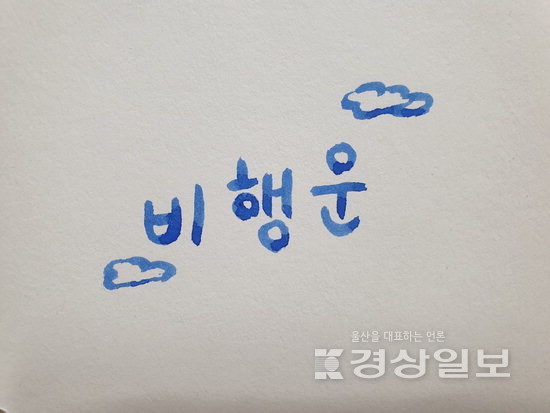 비행운
울산을 대표하는 언론
경상일보